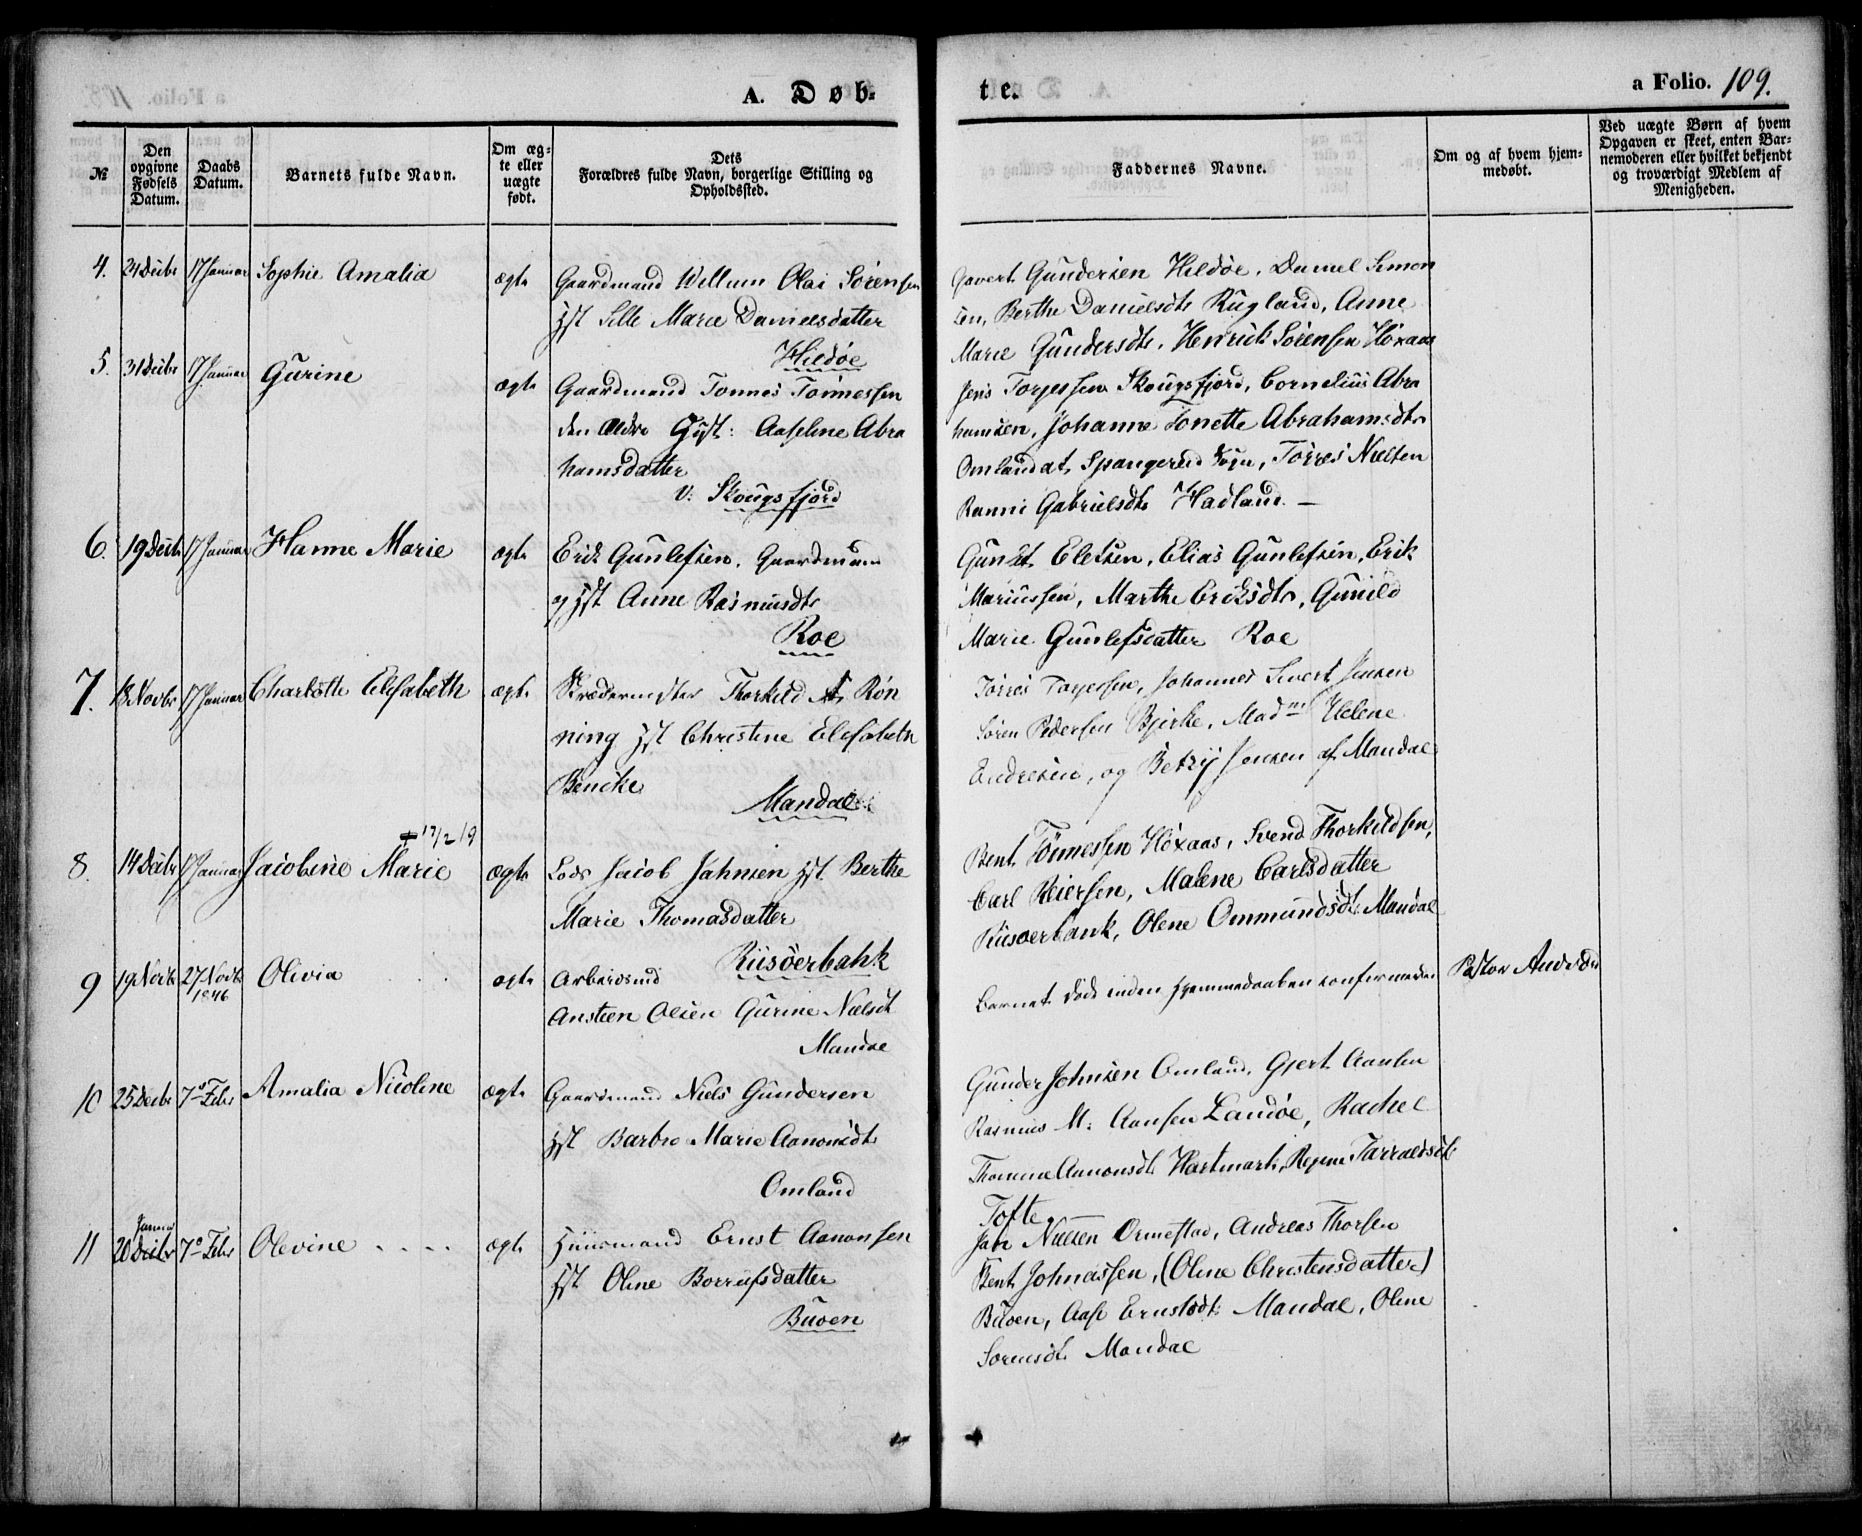 A. Døb-
te.
a Folio. 109.
№
Den opgivne Fødsels Datum.
Daabs Datum.
Barnets fulde Navn.
Om æg-
te eller
uægte
født.
Dets
Forældres fulde Navn, borgerlige Stilling og
Opholdssted.
Faddernes Navne.
Om og af hvem hjem-
medøbt.
Ved uægte Børn af hvem
Opgaven er skeet, enten Bar-
nemoderen eller hvilket bekjendt
og troværdigt Medlem af
Menigheden.
4. 24 Decbr 17 Januar Sophie Amalia ægte
Gaardmand Willum Olai Sörensen
Hst Sille Marie Danielsdatter
Hildøe
Govert Gundersen Hildöe, Daniel Simon
sen, Berthe Danielsdtr Rugland, Anne
Marie Gundersdtr, Henrich Sörensen Höxaas
5. 31 Decbr 17 Januar Gurine ægte
Gaardmand Tönnes Tönnessen
den Ældre Hst: Aaseline Abra
hamsdatter
v: Skougsfjord
Jens Torjessen Skougsfjord, Cornelius Abra
hamsen, Johanne Tonette Abrahamsdtr
Omland at Spangereid Sogn, Törres Nielsen
Ranni Gabrielsdtr Hadland. —
6. 19 Decbr 17 Januar Hanne Marie ægte
Erik Gunlefsen, Gaardmand
og Hst Anne Rasmusdtr
Roe
Elefsen, Elias Gunlefsen, Erik
Mariussen, Marthe Eriksdtr, Gunild
Marie Gunlefsdatter Roe
7. 18 Novbr 17 Januar Charlotte Elisabeth ægte
Skrædermester Thorkild A. Rön
ning Hst Christine Elisabeth
Bencke
Mandal
Törres Torjesen, Johannes Sivert Jensen
Sören Pedersen Bjerke, Madme Helene
Endresen, og Betzy Jensen af Mandal
8. 14 Decbr 17 Januar Jacobine Marie ægte
+ 17/2 19
Lods Jacob Jahnsen Hst Berthe
Marie Thomasdatter
Riisöerbank
Bent Tönnessen Höxaas, Svend Thorkildsen,
Carl Reiersen, Malene Carlsdatter
Riisöerbank, Olene Ommundsdtr Mandal
9 19 Novbr 27 Novbr
1846
Olivia ægte
Arbeidsmd
Ansteen Olsen Gurine Nielsdt
Mandal
Barnet döde inden Hjemmedaaben confirmeres
Pastor
10 25 Decbr 7de Febr Amalia Nicoline ægte
Gaardmand Niels Gundersen
Hst Barbro Marie Aanonsdtr
Omland
Gunder Johnsen Omland, Gjert Aansen
Rasmus M: Aansen Landöe, Rachel
Thomine Aanonsdt Hartmark, Regine Tarraldsdt
Tofte
11 Januar
20 Decbr 7de Febr Olevine - - - - ægte
Huusmand Ernst Aanonsen
Hst Olene Borrufsdatter
Buöen
Jan Nielsen Ormestad, Andreas Thorsen
Bent Johnassen, (Olene Christensdatter)
Buöen, Aase Ernstsdt: Mandal, Olene
Sorensdt. Mandal